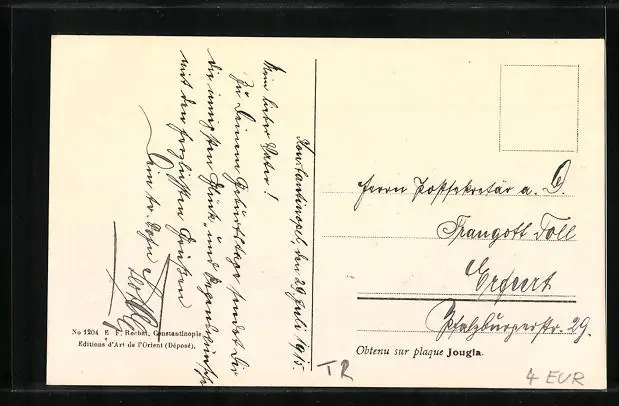 Konstantinopel, den 29. Juli 1915.
Mein lieber Vater!
Zu Deinem Geburtstage sendet Dir
die innigsten Glück- und Segenswünsche
mit den herzlichsten Grüßen
Dein tr. Sohn
Herrn Postsekretär a. D.
Traugott Toll
Erfurt
Pfalzburgerstr. 29.
No 1204 E. F. Rochat, Constantinople
Editions d'Art de l'Orient (Déposé).
Obtenu sur plaque Jougla.
TR
4 EUR